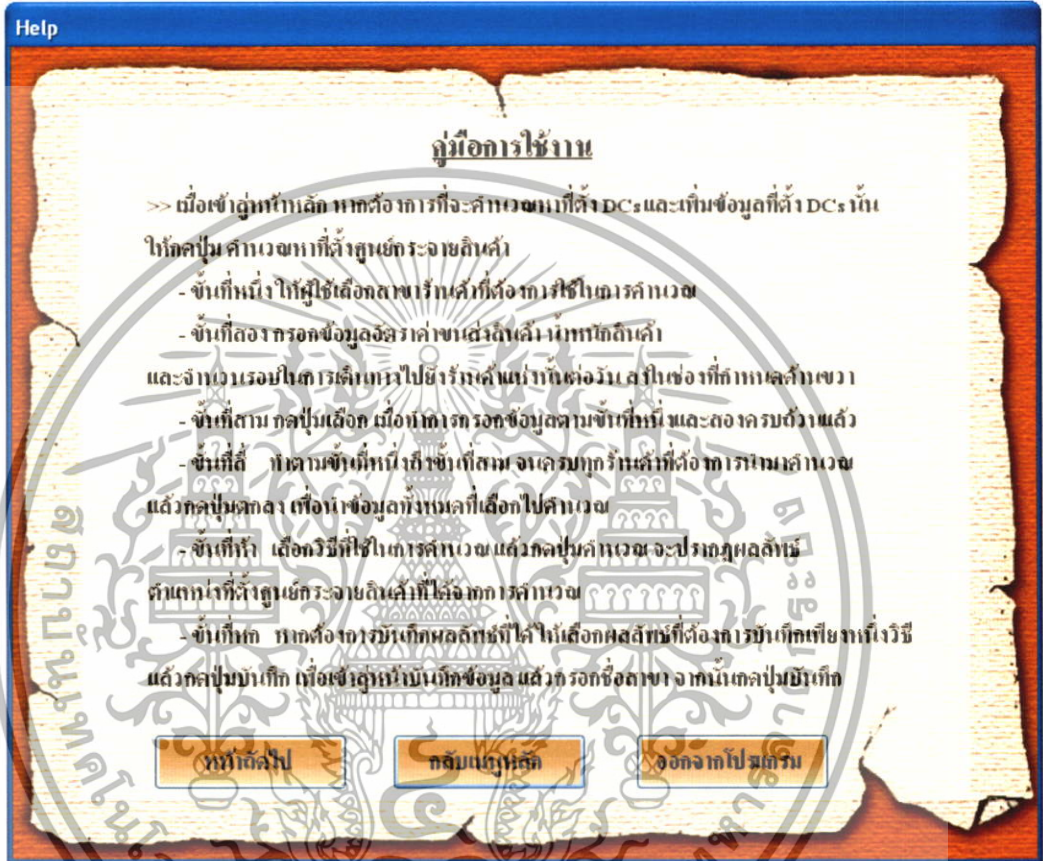 Help
คู่มือการใช้งาน
>> เมื่อเข้าสู่หน้าหลัก หากต้องการที่จะคำนวณหาที่ตั้ง DCs และเพิ่มข้อมูลที่ตั้ง DCs นั้น
ให้กดปุ่ม คำนวณหาที่ตั้งศูนย์กระจายสินค้า
- ขั้นที่หนึ่ง ให้ผู้ใช้เลือกสาขาร้านค้าที่ต้องการใช้ในการคำนวณ
- ขั้นที่สอง กรอกข้อมูลอัตราค่าขนส่งสินค้า น้ำหนักสินค้า
และจำนวนรอบในการเดินทางไปยังร้านค้าแห่งนั้นต่อวัน ลงในช่องที่กำหนดด้านขวา
- ขั้นที่สาม กดปุ่มเลือก เมื่อทำการกรอกข้อมูลตามขั้นที่หนึ่งและสองครบถ้วนแล้ว
- ขั้นที่สี่ ทำตามขั้นที่หนึ่งถึงขั้นที่สาม จนครบทุกร้านค้าที่ต้องการนำมาคำนวณ
แล้วกดปุ่มตกลง เพื่อนำข้อมูลทั้งหมดที่เลือกไปคำนวณ
- ขั้นที่ห้า เลือกวิธีที่ใช้ในการคำนวณ แล้วกดปุ่มคำนวณ จะปรากฏผลลัพธ์
ตำแหน่งที่ตั้งศูนย์กระจายสินค้าที่ได้จากการคำนวณ
- ขั้นที่หก หากต้องการบันทึกผลลัพธ์ที่ได้ ให้เลือกผลลัพธ์ที่ต้องการบันทึกเพียงหนึ่งวิธี
แล้วกดปุ่มบันทึก เพื่อเข้าสู่หน้าบันทึกข้อมูล แล้วกรอกชื่อสาขา จากนั้นกดปุ่มบันทึก
หน้าถัดไป
กลับเมนูหลัก
ออกจากโปรแกรม